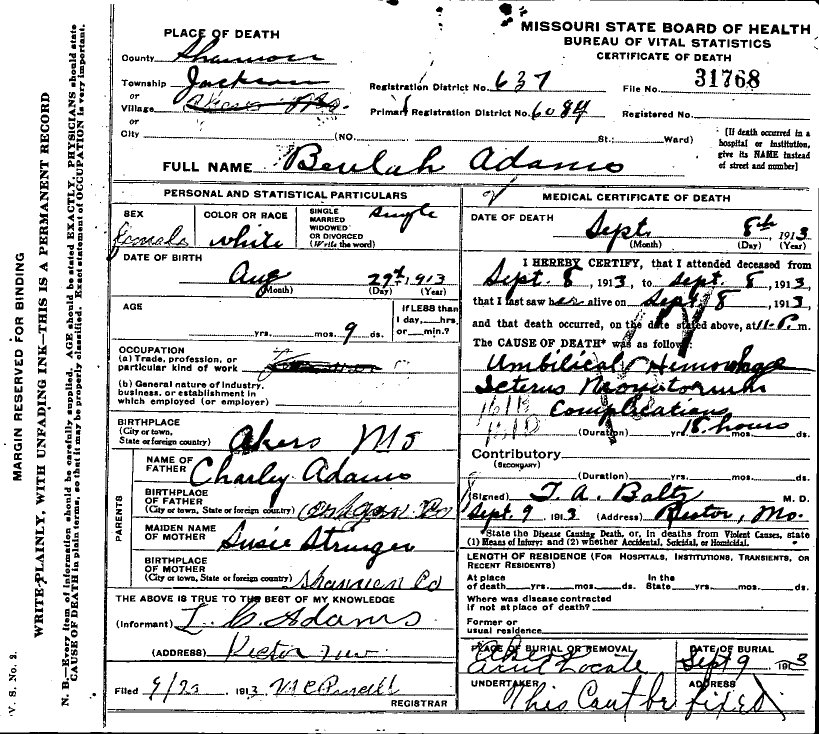 MISSOURI STATE BOARD OF HEALTH
BUREAU OF VITAL STATISTICS
CERTIFICATE OF DEATH
PLACE OF DEATH
County Shannon
Township Jackson
or
Village
or
City (NO. St.; Ward)
Registration District No. 637 File No. 31768
Primary Registration District No. 6084 Registered No.
[If death occurred in a
hospital or institution,
give its NAME instead
of street and number]
FULL NAME Beulah Adams
PERSONAL AND STATISTICAL PARTICULARS
SEX female
COLOR OR RACE white
SINGLE
MARRIED
WIDOWED
OR DIVORCED
(Write the word)
single
DATE OF BIRTH
Aug 29th, 1913
(Month) (Day) (Year)
AGE
yrs. mos. 9 ds.
If LESS than
1 day, hrs.
or min.?
OCCUPATION
(a) Trade, profession, or
particular kind of work
(b) General nature of industry,
business, or establishment in
which employed (or employer)
BIRTHPLACE
(City or town,
State or foreign country) Akers Mo
PARENTS
NAME OF
FATHER Charley Adams
BIRTHPLACE
OF FATHER
(City or town, State or foreign country) Oregon Co
MAIDEN NAME
OF MOTHER Susie Stringer
BIRTHPLACE
OF MOTHER
(City or town, State or foreign country) Shannon Co
THE ABOVE IS TRUE TO THE BEST OF MY KNOWLEDGE
(Informant) L C Adams
(ADDRESS) Rector
Filed 9/ 1913
REGISTRAR
MEDICAL CERTIFICATE OF DEATH
DATE OF DEATH
Sept. 8th 1913
(Month) (Day) (Year)
I HEREBY CERTIFY, that I attended deceased from
Sept. 8, 1913, to Sept. 8, 1913,
that I last saw her alive on Sept 8, 1913,
and that death occurred, on the date stated above, at 11 P. m.
The CAUSE OF DEATH* was as follows:
Umbilical Hemorrhage
Icterus Neonatorum
Complications
(Duration) yrs. 18 hours mos. ds.
Contributory
(SECONDARY)
(Duration) yrs. mos. ds.
(Signed) T. A. Baltz M. D.
Sept. 9, 1913 (Address) Rector, Mo.
*State the Disease Causing Death, or, in deaths from Violent Causes, state
(1) Means of Injury; and (2) whether Accidental, Suicidal, or Homicidal.
LENGTH OF RESIDENCE (FOR HOSPITALS, INSTITUTIONS, TRANSIENTS, OR
RECENT RESIDENTS)
At place
of death yrs. mos. ds.
In the
State yrs. mos. ds.
Where was disease contracted
if not at place of death?
Former or
usual residence
PLACE OF BURIAL OR REMOVAL
Akers
Cant Locate
DATE OF BURIAL
Sept 9 1913
UNDERTAKER
ADDRESS
This Cant be fixed
MARGIN RESERVED FOR BINDING
WRITE PLAINLY, WITH UNFADING INK—THIS IS A PERMANENT RECORD
N. B.—Every item of information should be carefully supplied. AGE should be stated EXACTLY. PHYSICIANS should state
CAUSE OF DEATH in plain terms, so that it may be properly classified. Exact statement of OCCUPATION is very important.
V. S. No. 2.